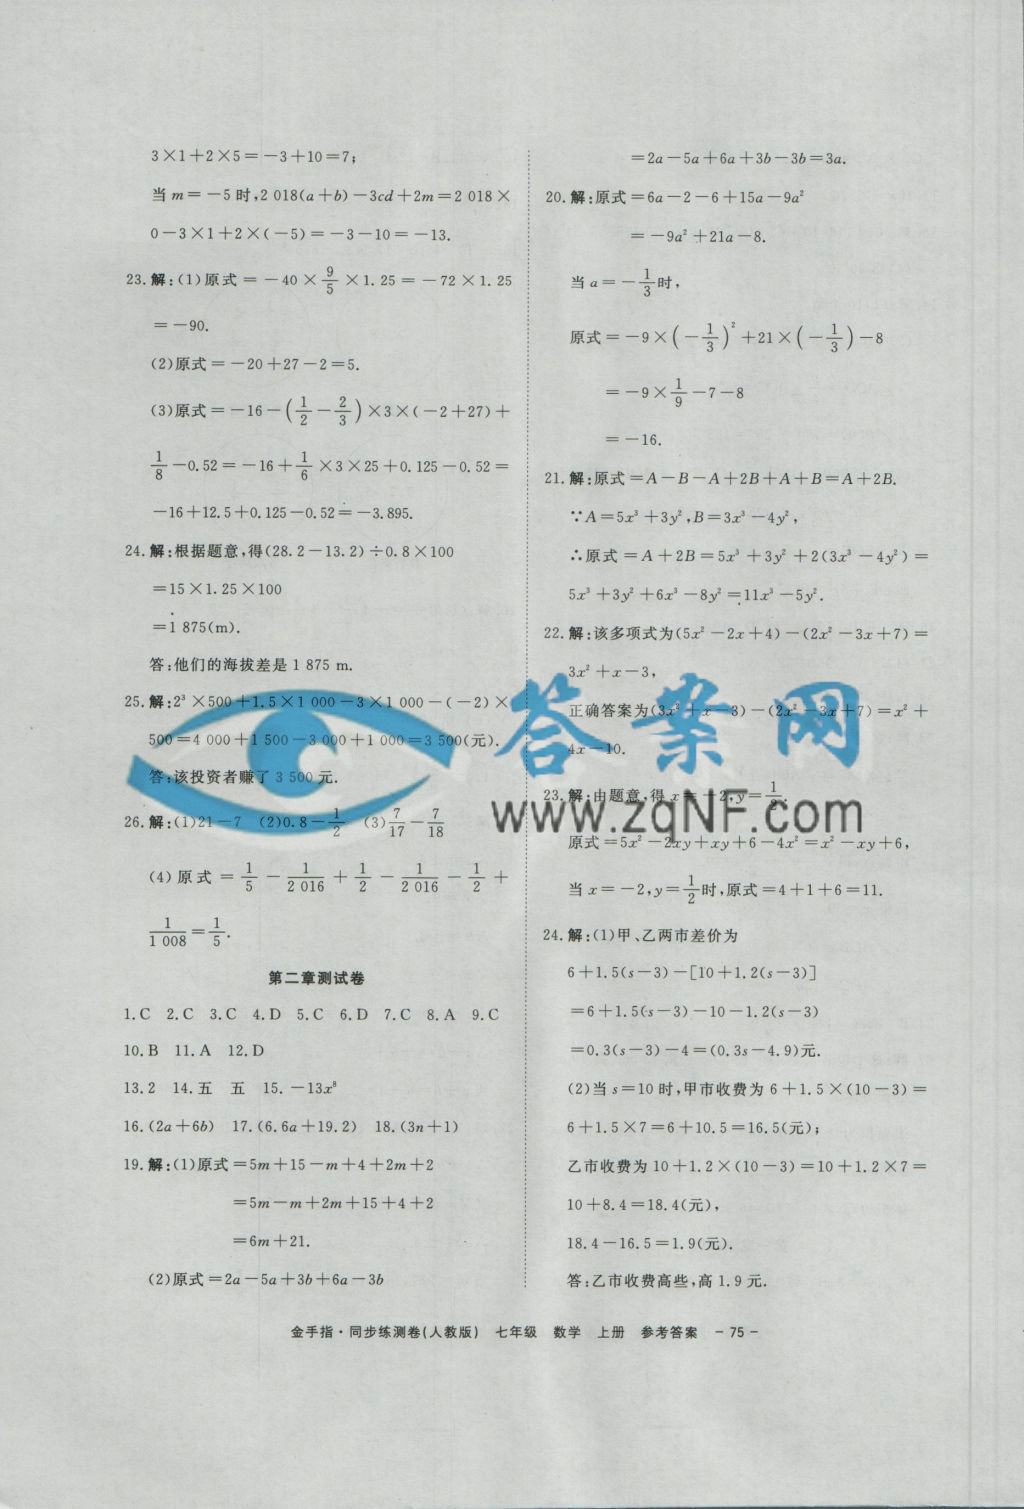 3×1+2×5=-3+10=7;
当m=-5时,2 018(a+b)-3cd+2m=2 018×
0-3×1+2×(-5)=-3-10=-13.
23.解:(1)原式=-40×9/5×1.25=-72×1.25
=-90.
(2)原式=-20+27-2=5.
(3)原式=-16-(1/2-2/3)×3×(-2+27)+
1/8-0.52=-16+1/6×3×25+0.125-0.52=
-16+12.5+0.125-0.52=-3.895.
24.解:根据题意,得(28.2-13.2)÷0.8×100
=15×1.25×100
=1 875(m).
答:他们的海拔差是1 875 m.
25.解:2³×500+1.5×1 000-3×1 000-(-2)×
500=4 000+1 500-3 000+1 000=3 500(元).
答:该投资者赚了3 500元.
26.解:(1)21-7 (2)0.8-1/2 (3)7/17-7/18
(4)原式=1/5-1/2 016+1/2-1/2 016-1/2+
1/1 008=1/5.
第二章测试卷
1.C 2.C 3.C 4.D 5.C 6.D 7.C 8.A 9.C
10.B 11.A 12.D
13.2 14.五 五 15.-13x⁸
16.(2a+6b) 17.(6.6a+19.2) 18.(3n+1)
19.解:(1)原式=5m+15-m+4+2m+2
=5m-m+2m+15+4+2
=6m+21.
(2)原式=2a-5a+3b+6a-3b
=2a-5a+6a+3b-3b=3a.
20.解:原式=6a-2-6+15a-9a²
=-9a²+21a-8.
当a=-1/3时,
原式=-9×(-1/3)²+21×(-1/3)-8
=-9×1/9-7-8
=-16.
21.解:原式=A-B-A+2B+A+B=A+2B.
∵A=5x³+3y²,B=3x³-4y²,
∴原式=A+2B=5x³+3y²+2(3x³-4y²)=
5x³+3y²+6x³-8y²=11x³-5y².
22.解:该多项式为(5x²-2x+4)-(2x²-3x+7)=
3x²+x-3,
正确答案为(3x²+x-3)-(2x²-3x+7)=x²+
4x-10.
23.解:由题意,得x=-2,y=1/2.
原式=5x²-2xy+xy+6-4x²=x²-xy+6,
当x=-2,y=1/2时,原式=4+1+6=11.
24.解:(1)甲、乙两市差价为
6+1.5(s-3)-[10+1.2(s-3)]
=6+1.5(s-3)-10-1.2(s-3)
=0.3(s-3)-4=(0.3s-4.9)元.
(2)当s=10时,甲市收费为6+1.5×(10-3)=
6+1.5×7=6+10.5=16.5(元);
乙市收费为10+1.2×(10-3)=10+1.2×7=
10+8.4=18.4(元),
18.4-16.5=1.9(元).
答:乙市收费高些,高1.9元.
答案网
www.zqNF.com
金手指·同步练测卷(人教版) 七年级 数学 上册 参考答案 -75-